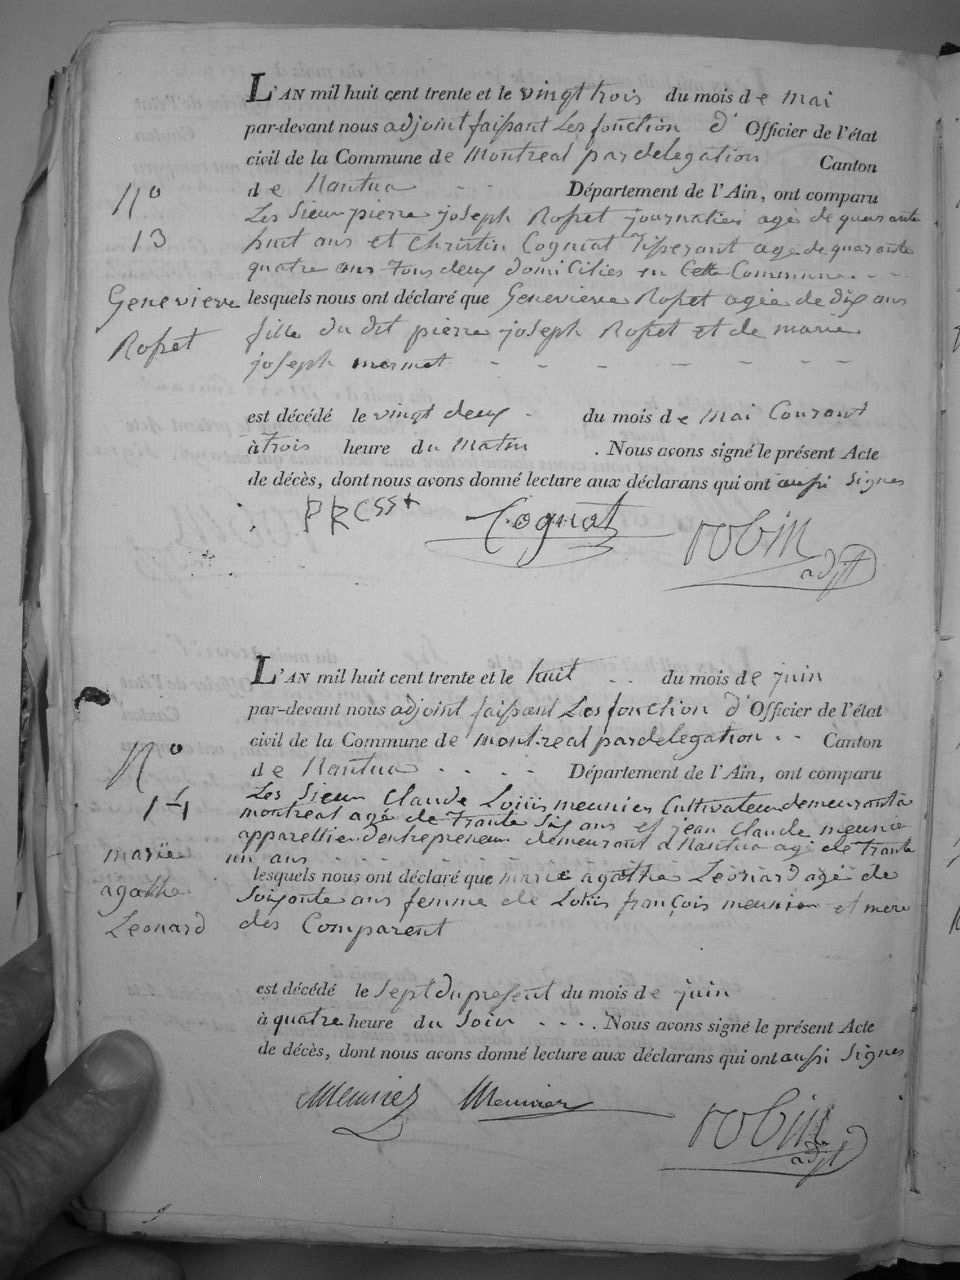 L'AN mil huit cent trente et le vingt trois du mois de mai
par-devant nous adjoint faisant Les fonction d' Officier de l'état
civil de la Commune de Montreal par delegation Canton
de Nantua - - Département de l'Ain, ont comparu
Les Sieur pierre joseph Rosset journalier agé de quarante
huit ans et Christin Cogniat Tisserant agé de quarante
quatre ans tous deux domiciliés en Cette Commune - -
N° 13
Genevieve
Rosset
lesquels nous ont déclaré que Genevieve Rosset agée de dix ans
fille du dit pierre joseph Rosset et de marie
joseph mermet - - - - - - -
est décédé le vingt deux - du mois de mai Courant
à trois heure du Matin . Nous avons signé le présent Acte
de décès, dont nous avons donné lecture aux déclarans qui ont aussi signes
Cogniat robin
adjt
L'AN mil huit cent trente et le huit - - du mois de juin
par-devant nous adjoint faisant Les fonction d' Officier de l'état
civil de la Commune de Montreal par delegation - - Canton
de Nantua - - - - Département de l'Ain, ont comparu
Les Sieur Claude Loüis meunier Cultivateur demeurant à
montreal agé de trante six ans et jean Claude meunie
apparellier d'entrepreneur demeurant a Nantua agé de trante
un ans - - - -
N° 14
marie
agathe
Leonard
lesquels nous ont déclaré que marie agathe Leonard agé de
Soixante ans femme de Loüis françois meunier et mere
des Comparent
est décédé le Sept du present du mois de juin
à quatre heure du Soir - - - - . Nous avons signé le présent Acte
de décès, dont nous avons donné lecture aux déclarans qui ont aussi Signes
Meunier Meunier robin
adjt